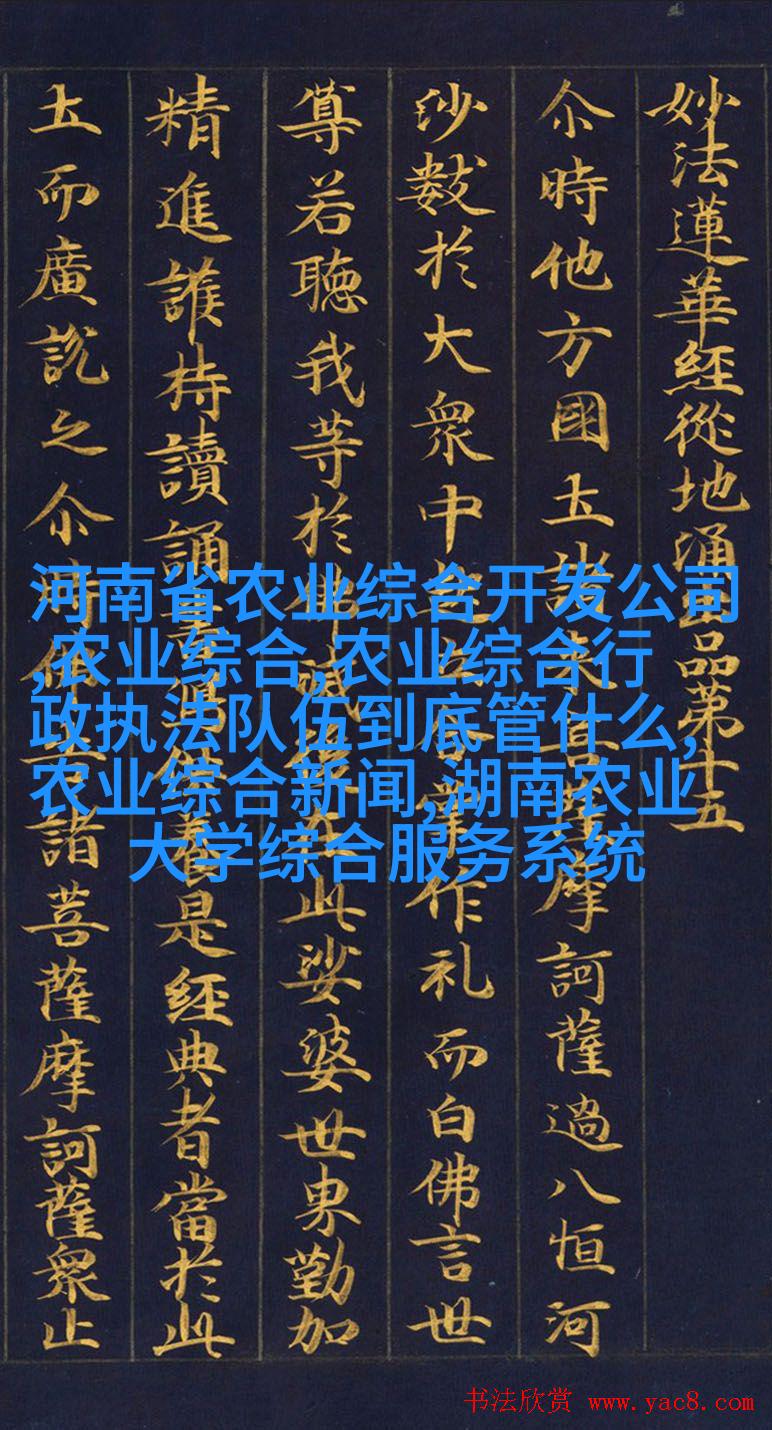 妙法蓮華經從地涌出品第十五
尒時他方國土諸摩訶薩過八恒河
沙數於大衆中作礼而白佛言世
尊若聽我等於佛此娑婆世界勤加
精進護持讀誦是經典者當於此
土而廣說之尒時諸菩薩摩訶薩衆止
河南省农业综合开发公司
,农业综合,农业综合行
政执法队伍到底管什么,
农业综合新闻,湖南农业
大学综合服务系统
书法欣赏 www.yac8.com